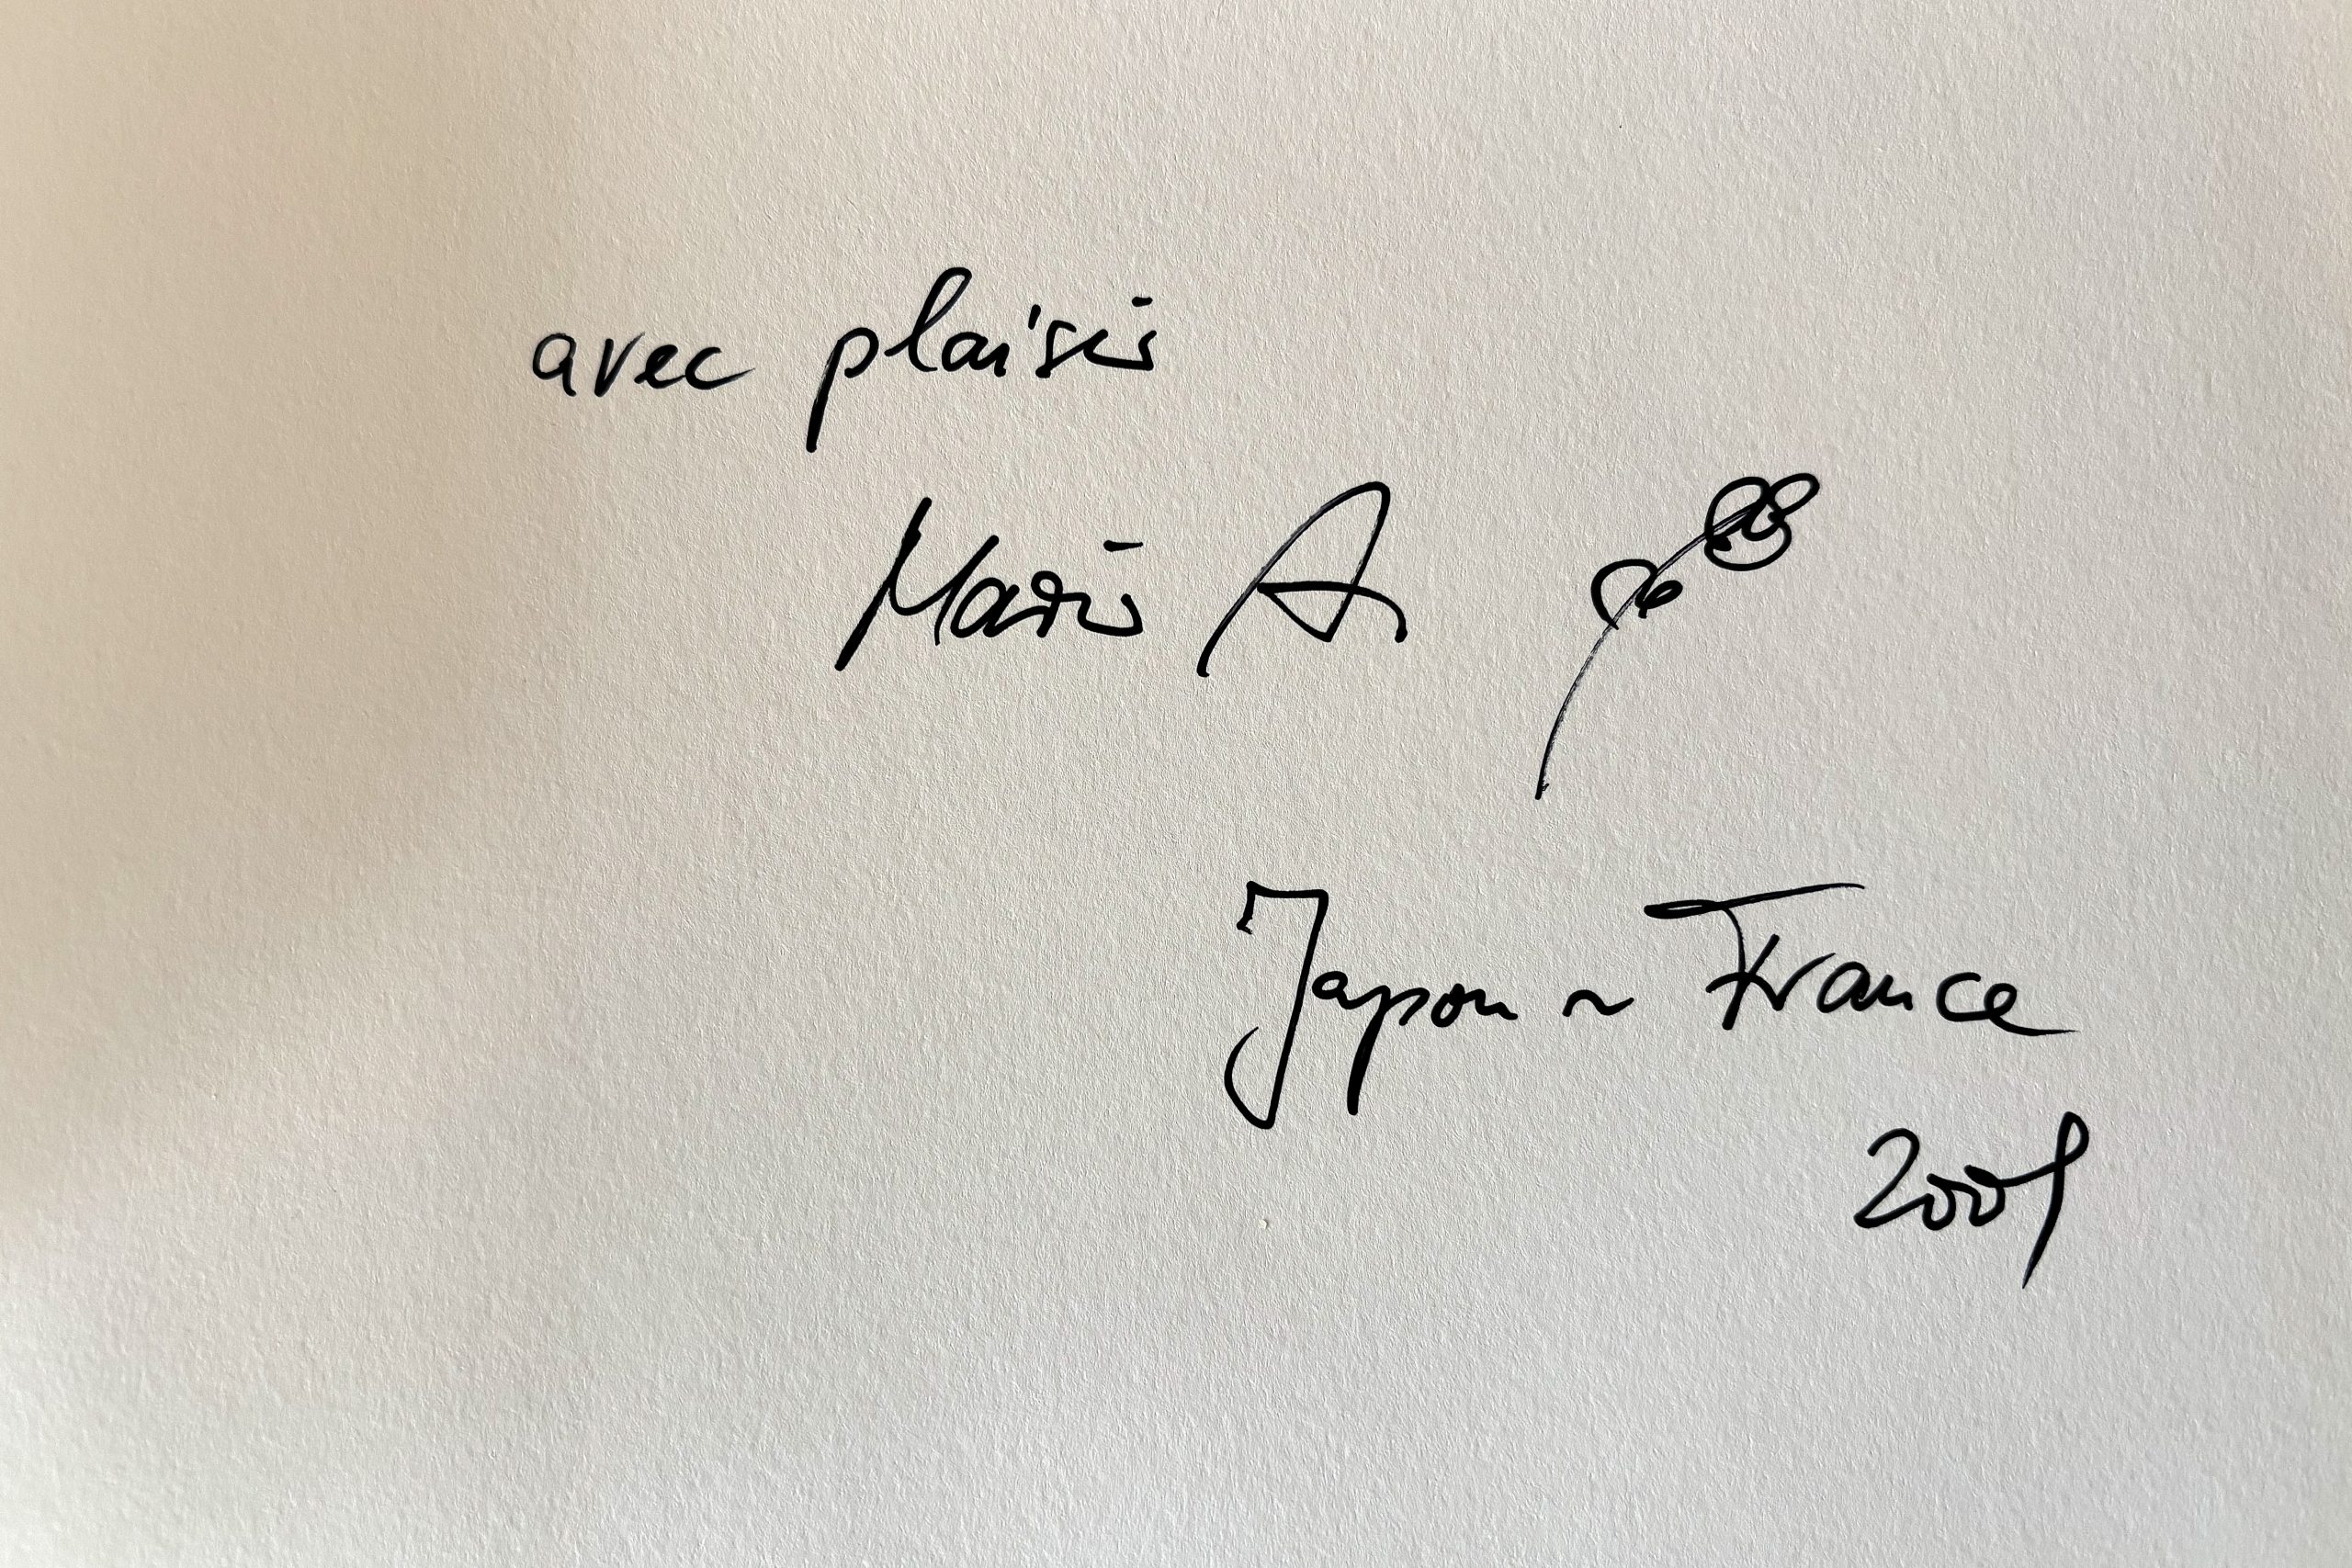 avec plaisir
Mario A
Japon ~ France
2009